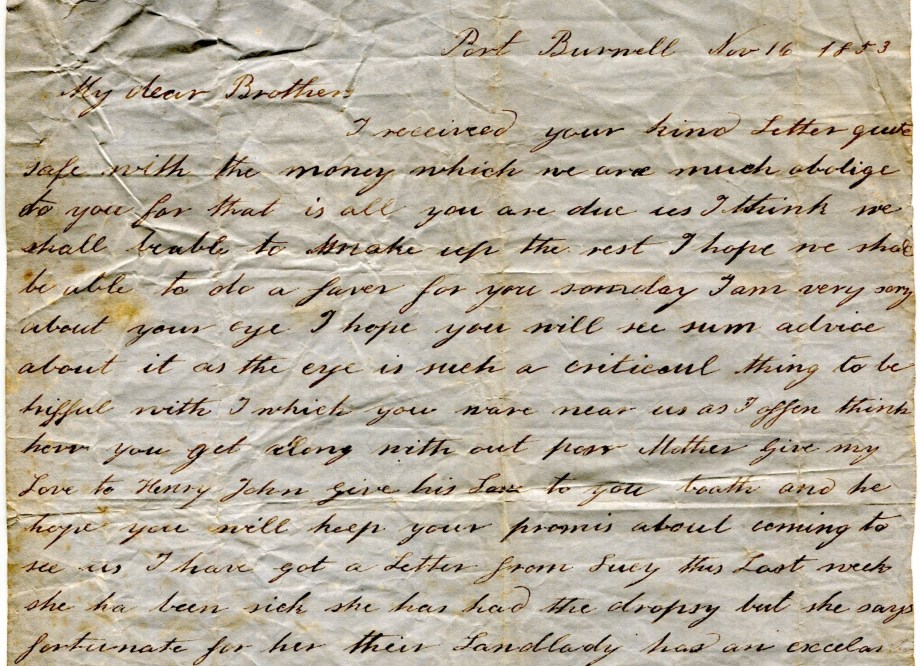 Port Burwell Nov 16 1853
My dear Brother
I received your kind Letter quite
safe with the money which we are much abolige
to you for that is all you are due us I think we
shall beable to make up the rest I hope we shall
be able to do a faver for you somday I am very sory
about your eye I hope you will see sum advice
about it as the eye is such a criticoul thing to be
trifful with I which you ware near us as I offen think
how you get along with out poor Mother Give my
Love to Henry John give his Love to you boath and he
hope you will keep your promis about coming to
see us I have got a Letter from Lucy this Last week
she ha been sick she has had the dropsy but she says
fortunate for her their Landlady had an excelan